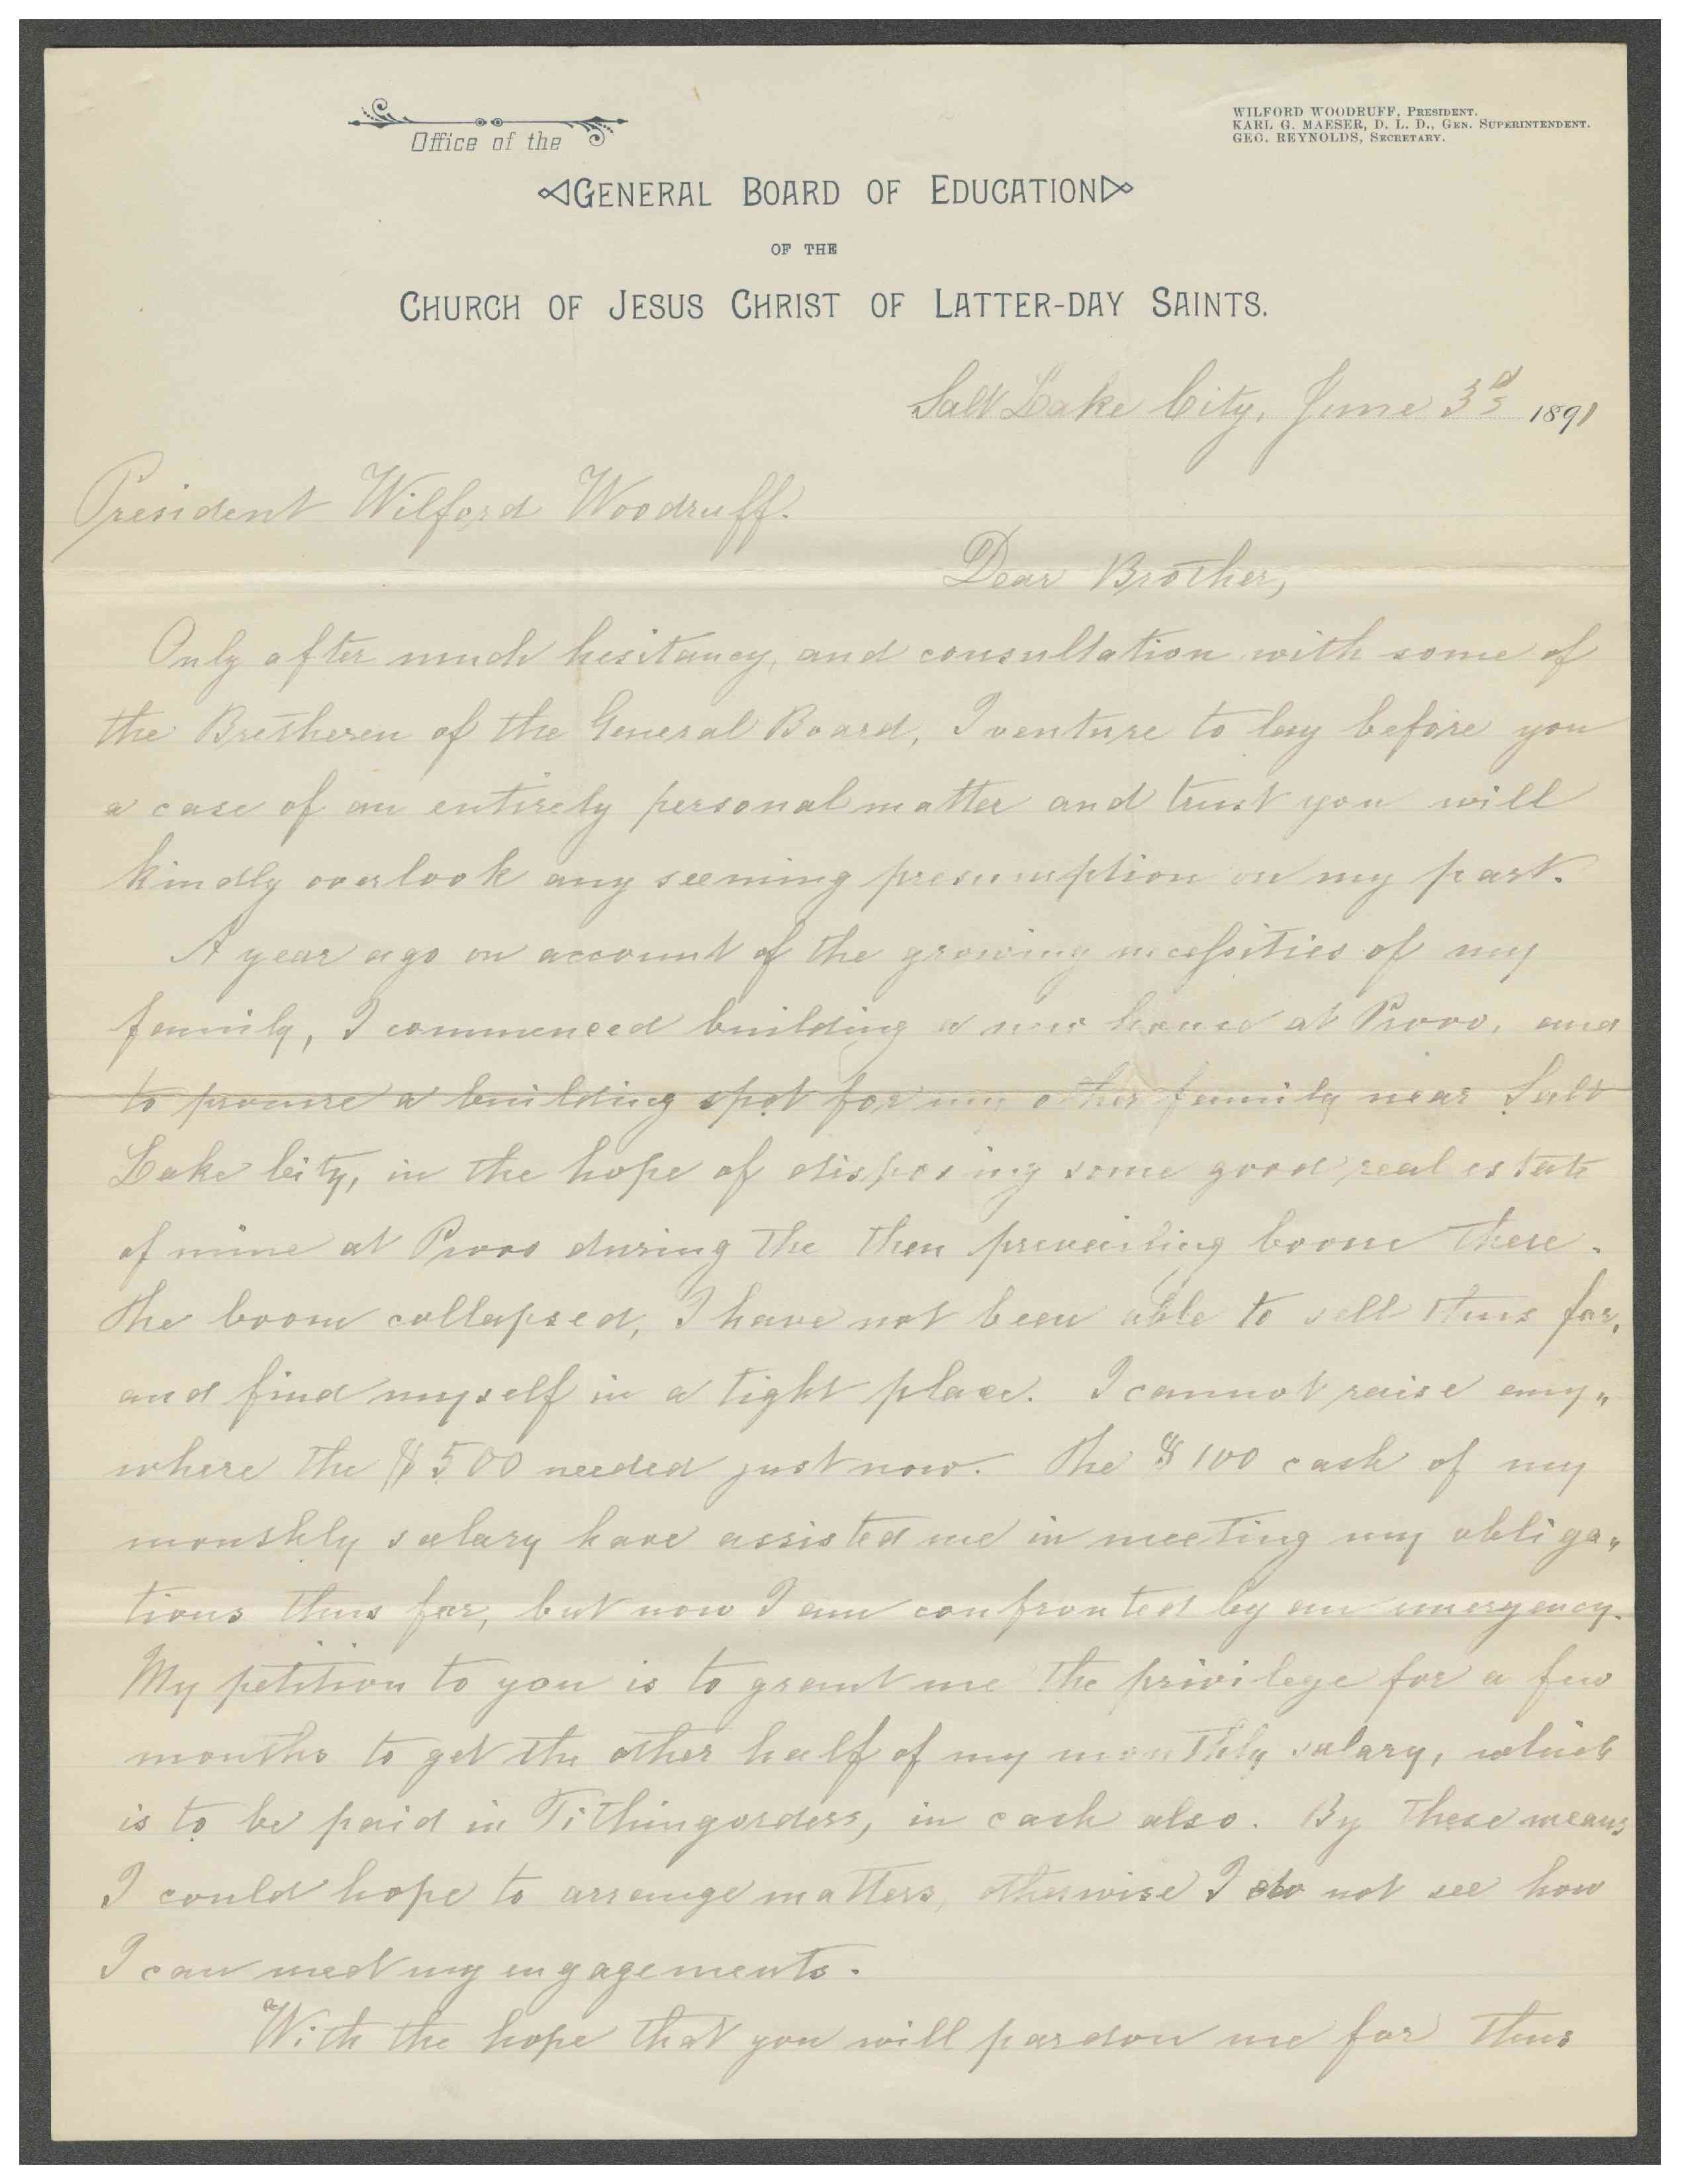 WILFORD WOODRUFF, PRESIDENT.
KARL G. MAESER, D. L. D., GEN. SUPERINTENDENT.
GEO. REYNOLDS, SECRETARY.
Office of the
GENERAL BOARD OF EDUCATION
OF THE
CHURCH OF JESUS CHRIST OF LATTER-DAY SAINTS.
Salt Lake City, June 3d 1891
President Wilford Woodruff.
Dear Brother,
Only after much hesitancy, and consultation with some of
the Bretheren of the General Board, I venture to lay before you
a case of an entirely personal matter and trust you will
kindly overlook any seeming presumption on my part.
A year ago on account of the growing necessities of my
family, I commenced building a new house at Provo, and
to procure a building spot for my other family near Salt
Lake City, in the hope of disposing some good real estate
of mine at Provo during the then prevailing boom there.
The boom collapsed, I have not been able to sell thus far,
and find myself in a tight place. I cannot raise any„
where the $500 needed just now. The $100 cash of my
monthly salary have assisted me in meeting my obliga„
tions thus far, but now I am confronted by an emergency.
My petition to you is to grant me the privilege for a few
months to get the other half of my monthly salary, which
is to be paid in Tithingorders, in cash also. By these means
I could hope to arrange matters, otherwise I do not see how
I can meet my engagements.
With the hope that you will pardon me for thus